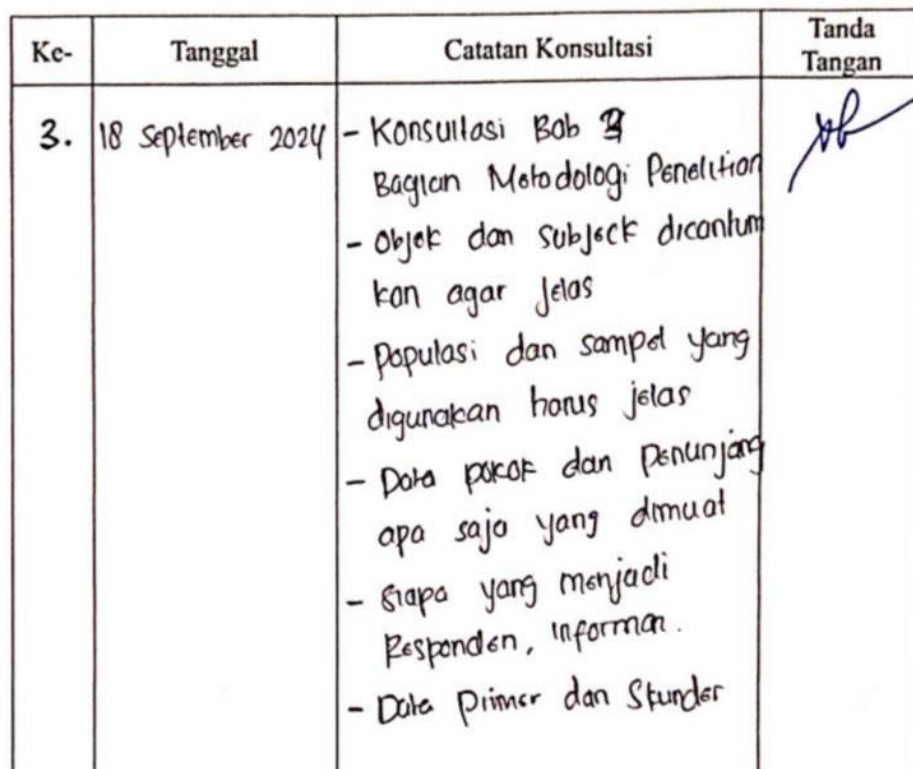 Ke- Tanggal Catatan Konsultasi Tanda Tangan
3. 18 September 2024 - Konsultasi Bab 3
Bagian Metodologi Penelitian
- Objek dan subjeck dicantum
kan agar jelas
- Populasi dan sampel yang
digunakan harus jelas
- Data pokok dan penunjang
apa saja yang dimuat
- Siapa yang menjadi
Responden, informan.
- Data primer dan Skunder